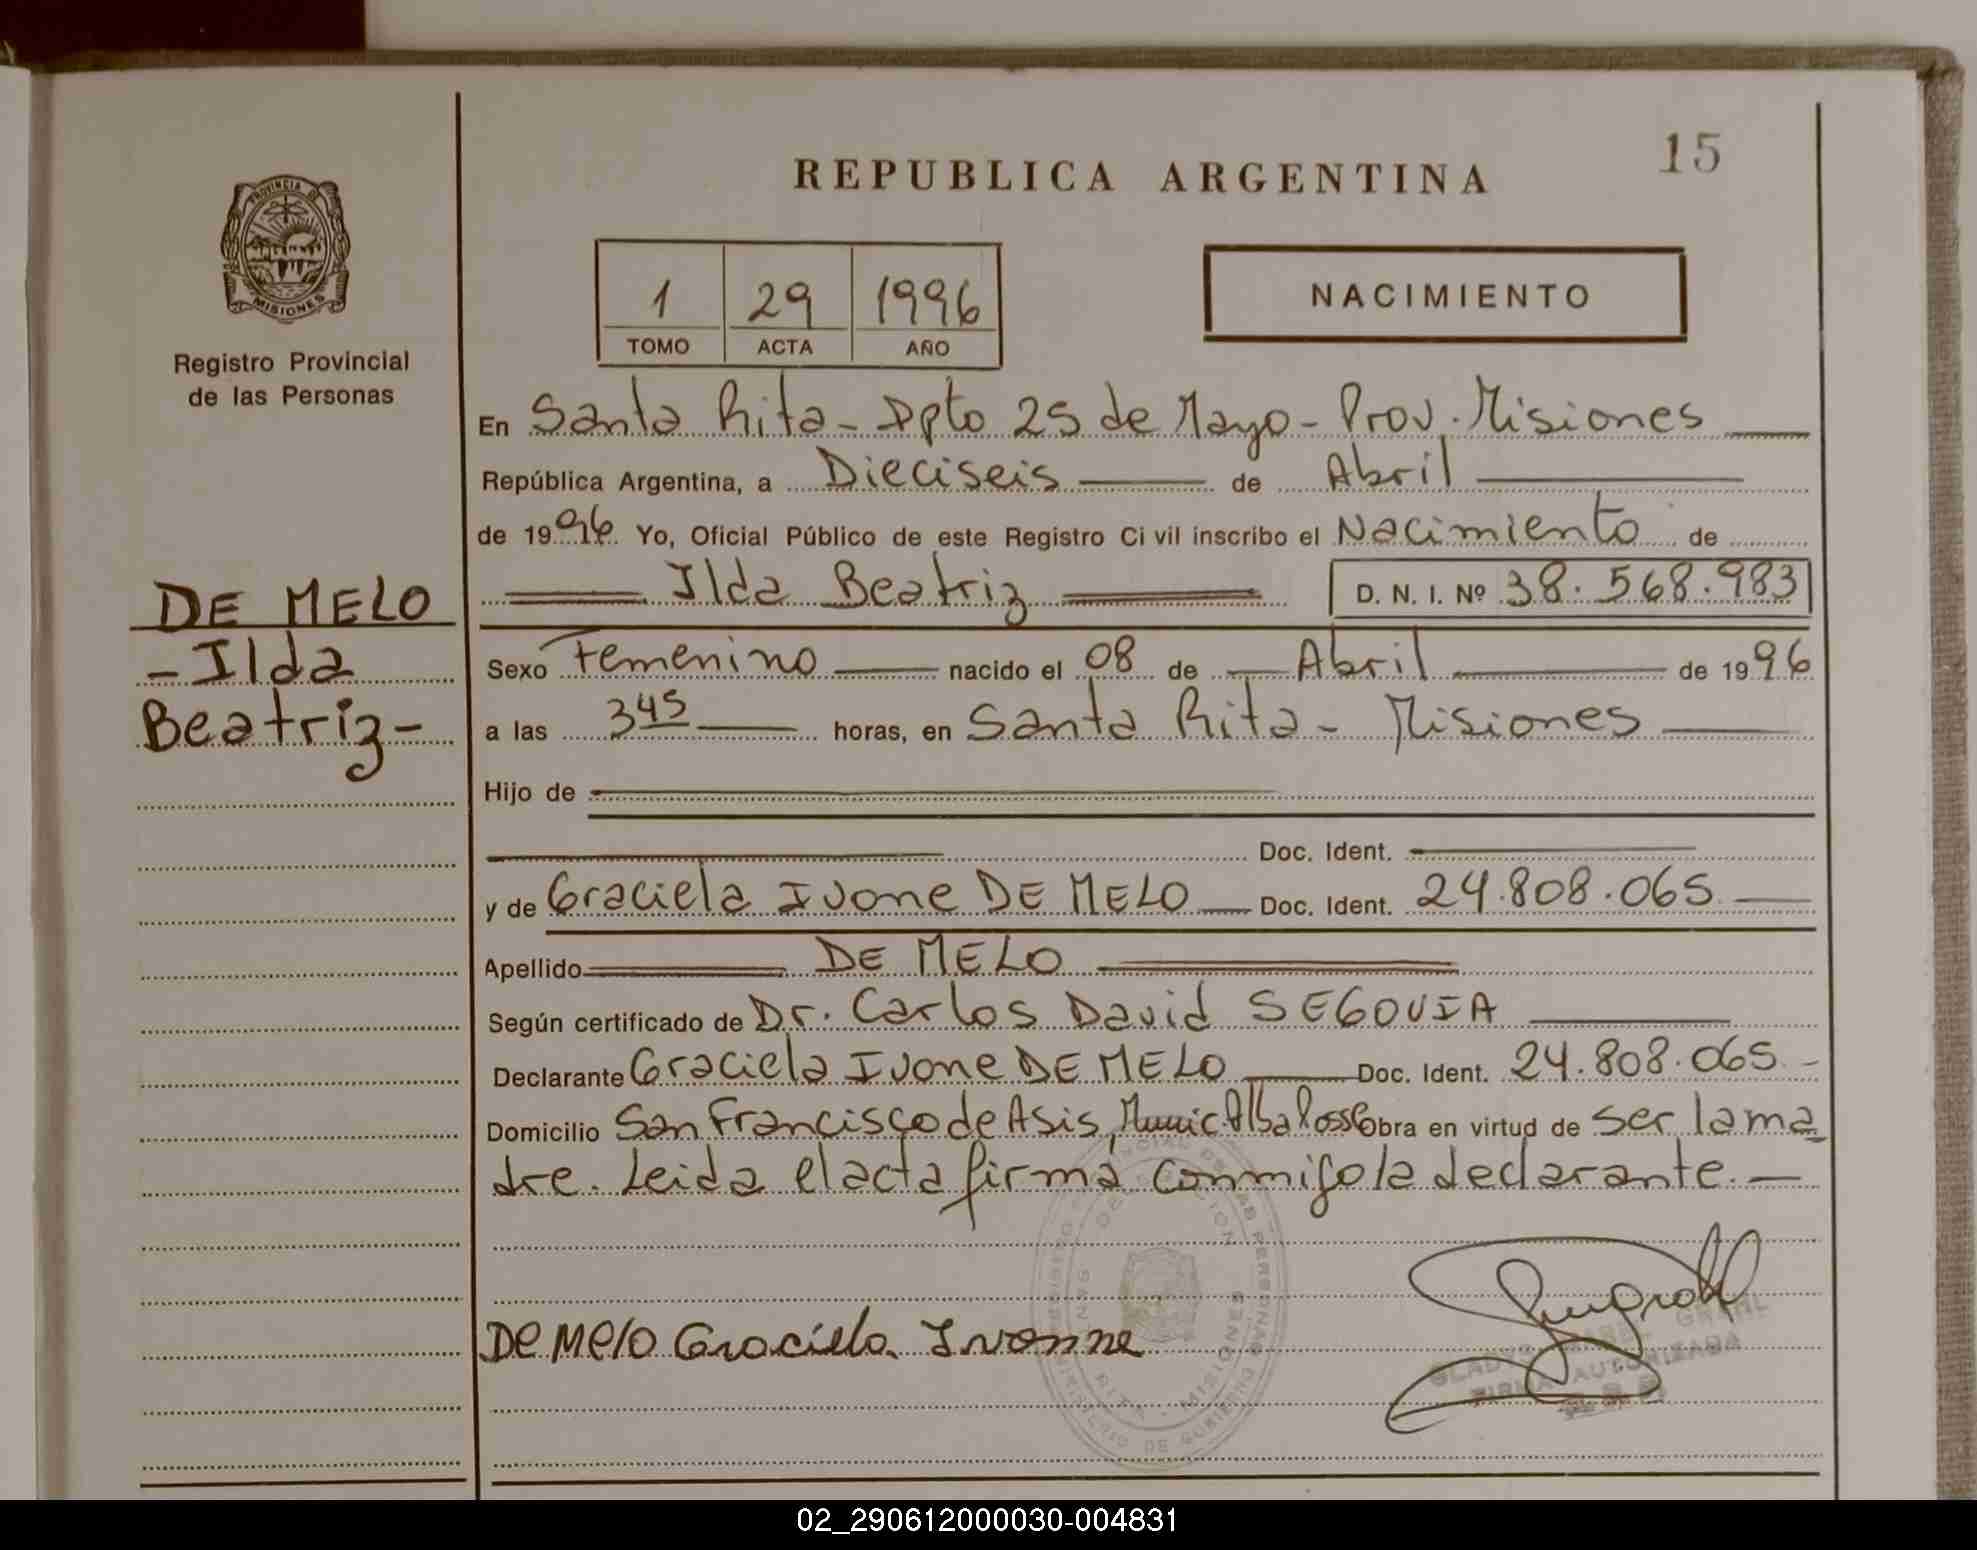 15
REPUBLICA ARGENTINA
PROVINCIA DE
MISIONES
Registro Provincial
de las Personas
1 29 1996
TOMO ACTA AÑO
NACIMIENTO
En Santa Rita - Dpto 25 de Mayo - Prov. Misiones
República Argentina, a Dieciseis de Abril
de 1996 Yo, Oficial Público de este Registro Civil inscribo el Nacimiento de
Ilda Beatriz D. N. I. Nº 38.568.983
DE MELO
- Ilda
Beatriz -
Sexo Femenino nacido el 08 de Abril de 1996
a las 3 45 horas, en Santa Rita - Misiones
Hijo de
Doc. Ident.
y de Graciela Ivone DE MELO Doc. Ident. 24.808.065
Apellido DE MELO
Según certificado de Dr. Carlos David SEGOVIA
Declarante Graciela Ivone DE MELO Doc. Ident. 24.808.065 -
Domicilio San Francisco de Asis, Munic Alba Posse Obra en virtud de ser la ma
dre. Leida el acta firma conmigo la declarante. -
De Melo Graciela Ivonne
GLADYS GRAHL
FIRMA AUTORIZADA
RITA - MISIONES
02_290612000030-004831